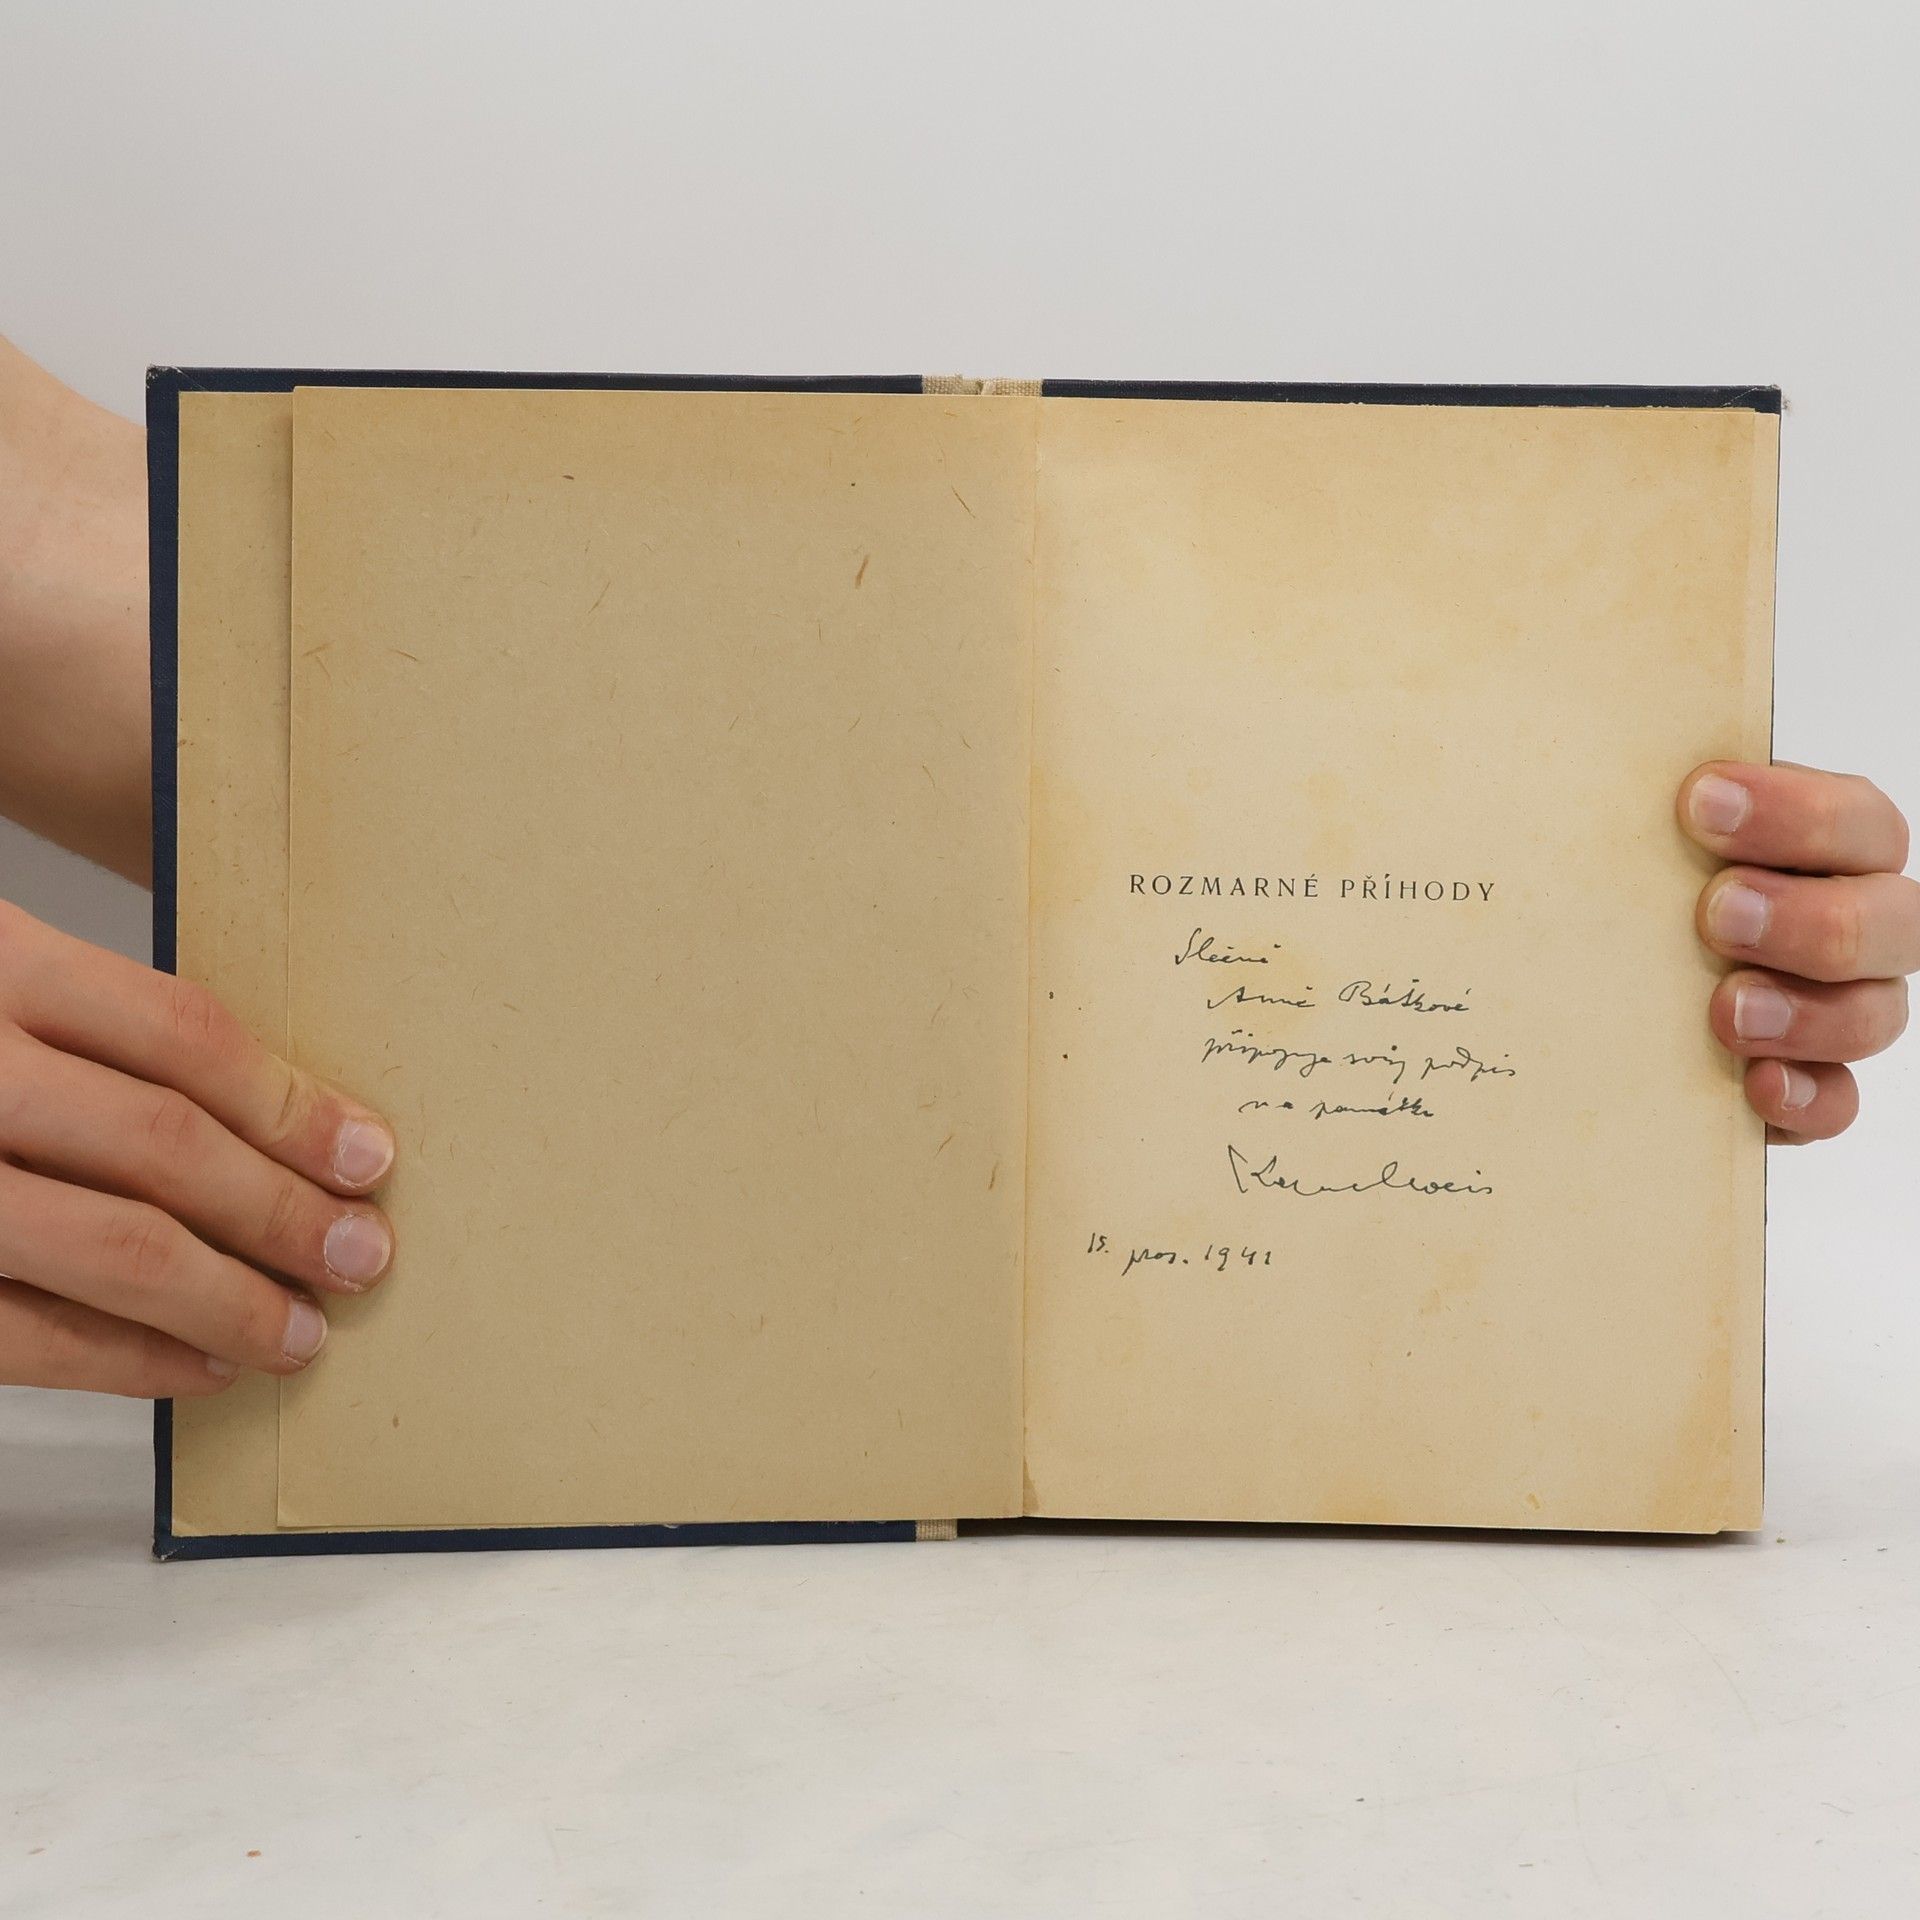 ROZMARNÉ PŘÍHODY
Slečně
Anně Báškové
připojuje svůj podpis
na památku
Karel Weis
15. pros. 1941